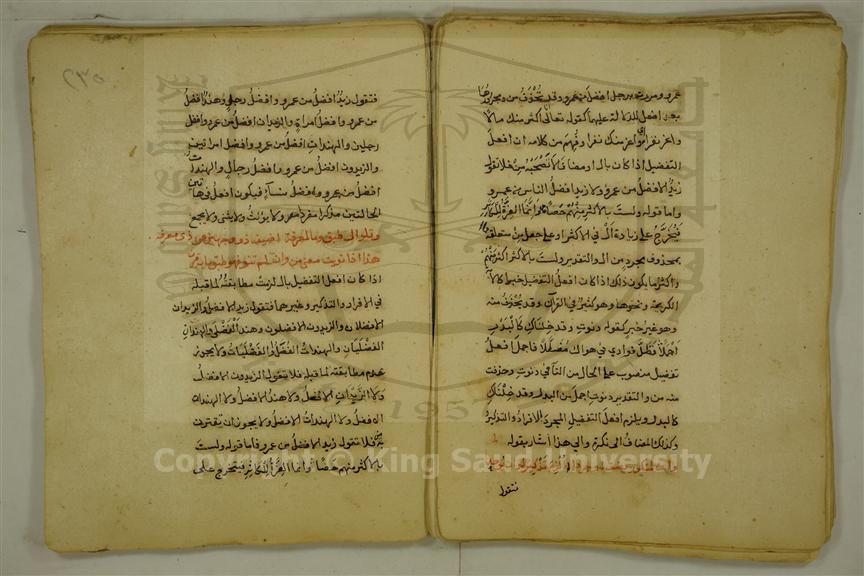 عمرو ومررت برجل افضل من عمرو وقد تحذف من ومجرورها
بعد افعل للدلالة عليها كقوله تعالى انا اكثر منك مالا
واعز نفرا اي واعز منك نفرا وفهم من كلامه ان افعل
التفضيل اذا كان بال او مضافا لا تصحبه من فلا تقول
زيد الافضل من عمرو ولا زيد افضل الناس من عمرو
واما قوله ولست بالاكثر منهم حصا وانما العزة للكاثر
فيخرج على زيادة ال في الاكثر او على جعل من متعلقة
بمحذوف مجرد من ال والتقدير ولست بالاكثر اكثر منهم
واكثر ما يكون ذلك اذا كان افعل التفضيل خبرا كالاية
الكريمة ونحوها وهو كثير في القران وقد تحذف منه
وهو غير خبر كقوله دنوت وقد خلناك كالبدر
اجملا فظل فوادي في هواك مضللا فاجمل افعل
تفضيل منصوب على الحال من التا في دنوت وحذفت
منه من والتقدير دنوت اجمل من البدر وقد خلناك
كالبدر ويلزم افعل التفضيل المجرد الافراد والتذكير
وكذلك المضاف الى نكرة والى هذا اشار بقوله
وان لمنكور يضف او جردا الزم تذكيرا وان يوحدا
فتقول
٢٣٥
فتقول زيد افضل من عمرو وافضل رجل وهند افضل
من عمرو وافضل امراة والزيدان افضل من عمرو وافضل
رجلين والهندان افضل من عمرو وافضل امراتين
والزيدون افضل من عمرو وافضل رجال والهندات
افضل من عمرو وافضل نساء فيكون افعل في هاتين
الحالتين مذكرا مفردا ولا يؤنث ولا يثنى ولا يجمع
وتلو ال طبق وما لمعرفة اضيف ذو وجهين عن ذي معرفه
هذا اذا نويت معنى من وان لم تنو فهو طبق ما به قرن
اذا كان افعل التفضيل بال لزمت مطابقته لما قبله
في الافراد والتذكير وغيرهما فتقول زيد الافضل والزيدان
الافضلان والزيدون الافضلون وهند الفضلى والهندان
الفضليان والهندات الفضل او الفضليات ولا يجوز
عدم مطابقته لما قبله فلا تقول الزيدون الافضل
ولا الزيدان الافضل ولا هند الافضل ولا الهندان
الافضل ولا الهندات الافضل ولا يجوز ان يقترن
به من فلا تقول زيد الافضل من عمرو فاما قوله ولست
بالاكثر منهم حصا وانما العزة للكاثر فيخرج على
Copyright © King Saud University
1957